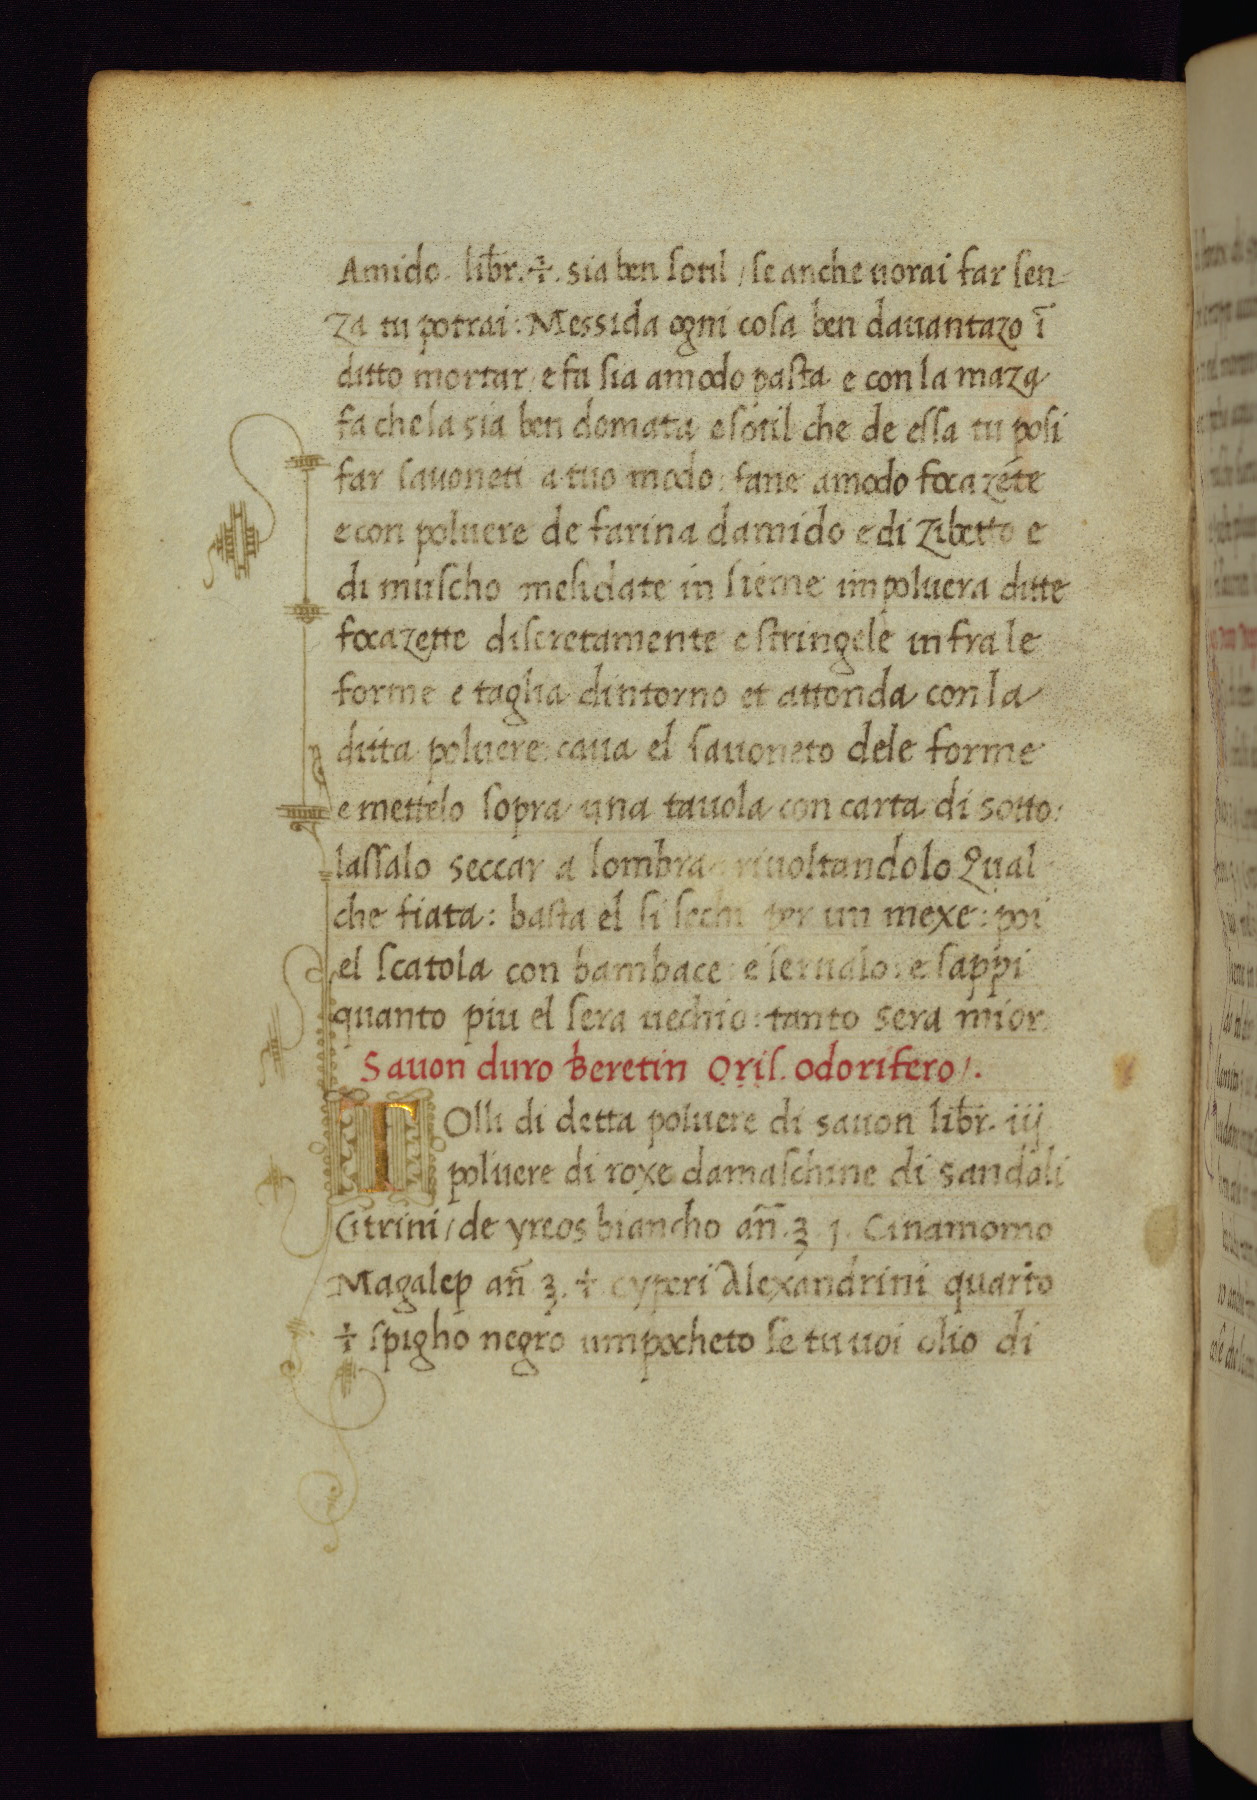 Amido. libr. ÷. sia ben sotil / se anche uorai far sen-
za tu potrai: Messida ogni cosa ben dauantazo ī
ditto mortar / e fa sia a modo pasta e con la maza
fa che la sia ben domata e sotil che de essa tu posi
far sauoneti a tuo modo: fane a modo focazete
e con poluere de farina damido e di zibetto e
di muscho mesidate in sieme impoluera ditte
focazette discretamente e stringele infra le
forme e taglia dintorno et attonda con la
ditta poluere: caua el sauoneto dele forme
e mettelo sopra una tauola con carta di sotto:
lassalo seccar a lombra riuoltandolo Qual
che fiata: basta el si sechi per un mexe: poi
el scatola con bambace: e serualo: e sappi
quanto piu el sera uechio: tanto sera mior.
Sauon duro Beretin Oris. odorifero /.
TOlli di detta poluere di sauon libr. iij
poluere di roxe damaschine di sandali
Citrini / de yreos biancho añ. ʒ. j. Cinamomo
Magalep añ ʒ. ÷ cyperi Alexandrini quarto
÷ spigho negro umpocheto se tu uoi olio di